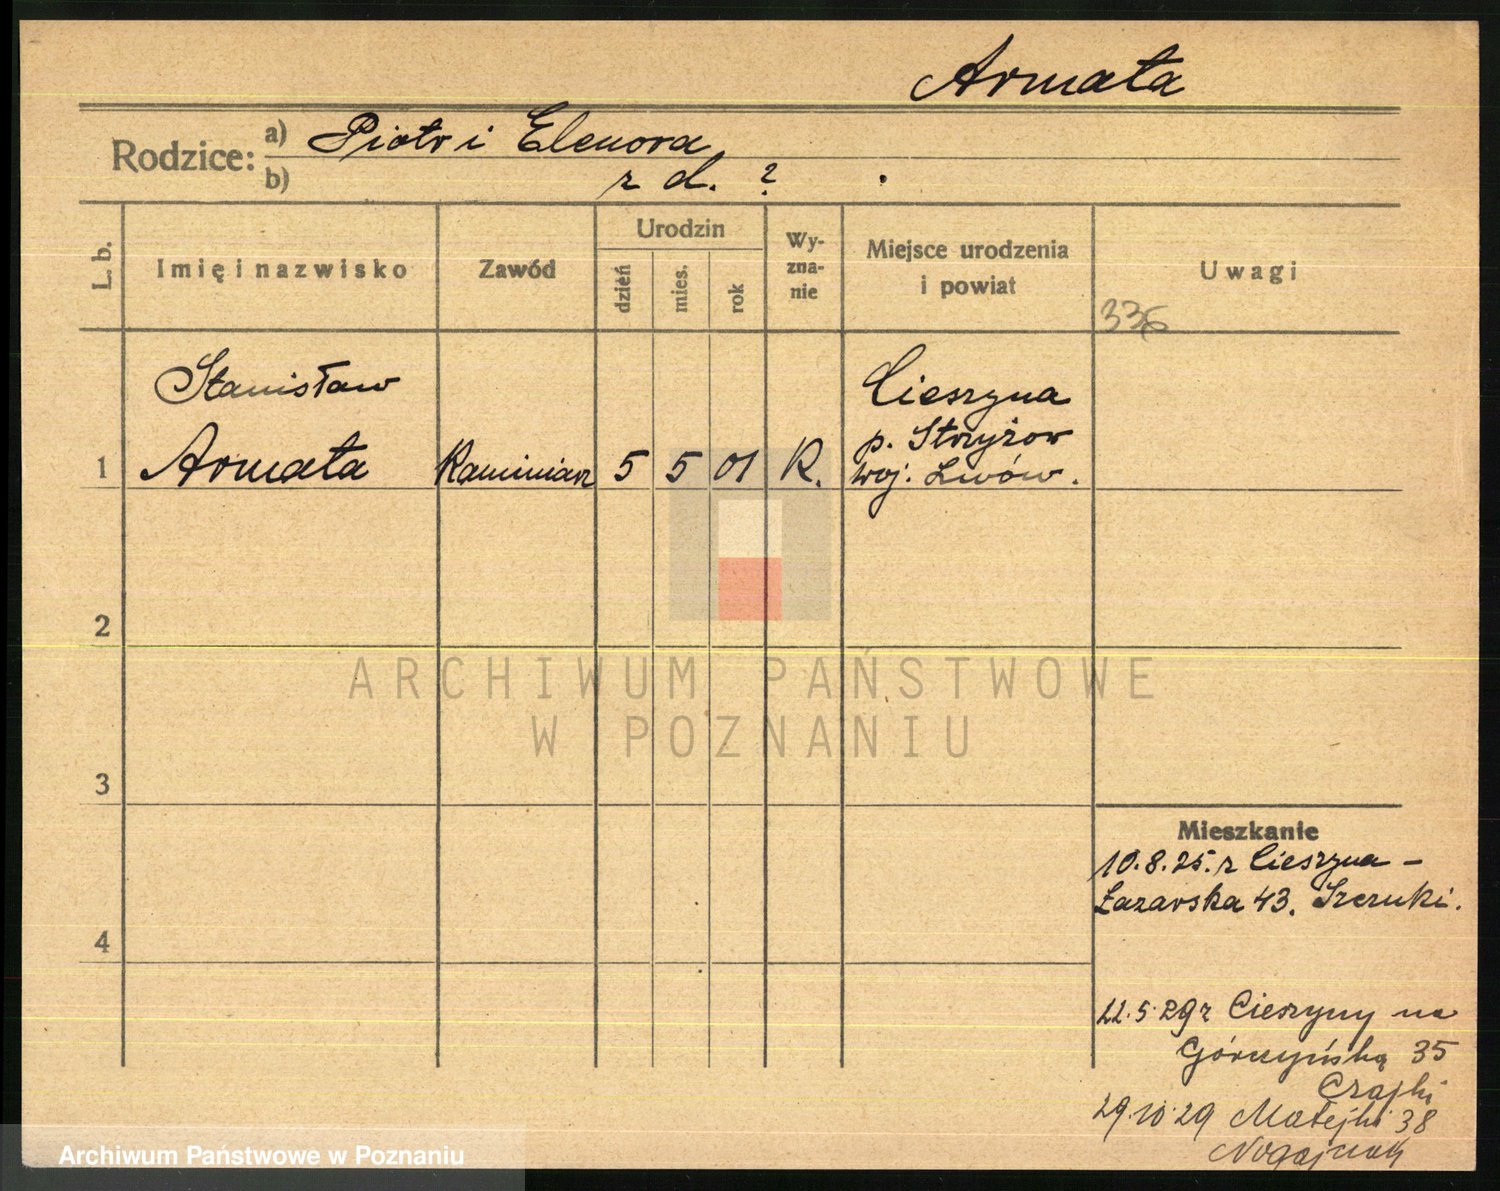 Armata
Rodzice: a) Piotr i Elenora
b) z d. ?
L. b.
Imię i nazwisko
Zawód
Urodzin
dzień
mies.
rok
Wy-
zna-
nie
Miejsce urodzenia
i powiat
Uwagi
336
1
Stanisław
Armata
Kamieniarz
5 5 01
R.
Cieszyna
p. Strzyżow
woj. Lwów.
2
3
4
Mieszkanie
10.8.25. z Cieszyna -
Łazarska 43. Szczuki.
22.5.29 z Cieszyny na
Górczyńską 35
Czajki
29.10.29 Matejki 38
Nogajczak
ARCHIWUM PAŃSTWOWE
W POZNANIU
Archiwum Państwowe w Poznaniu